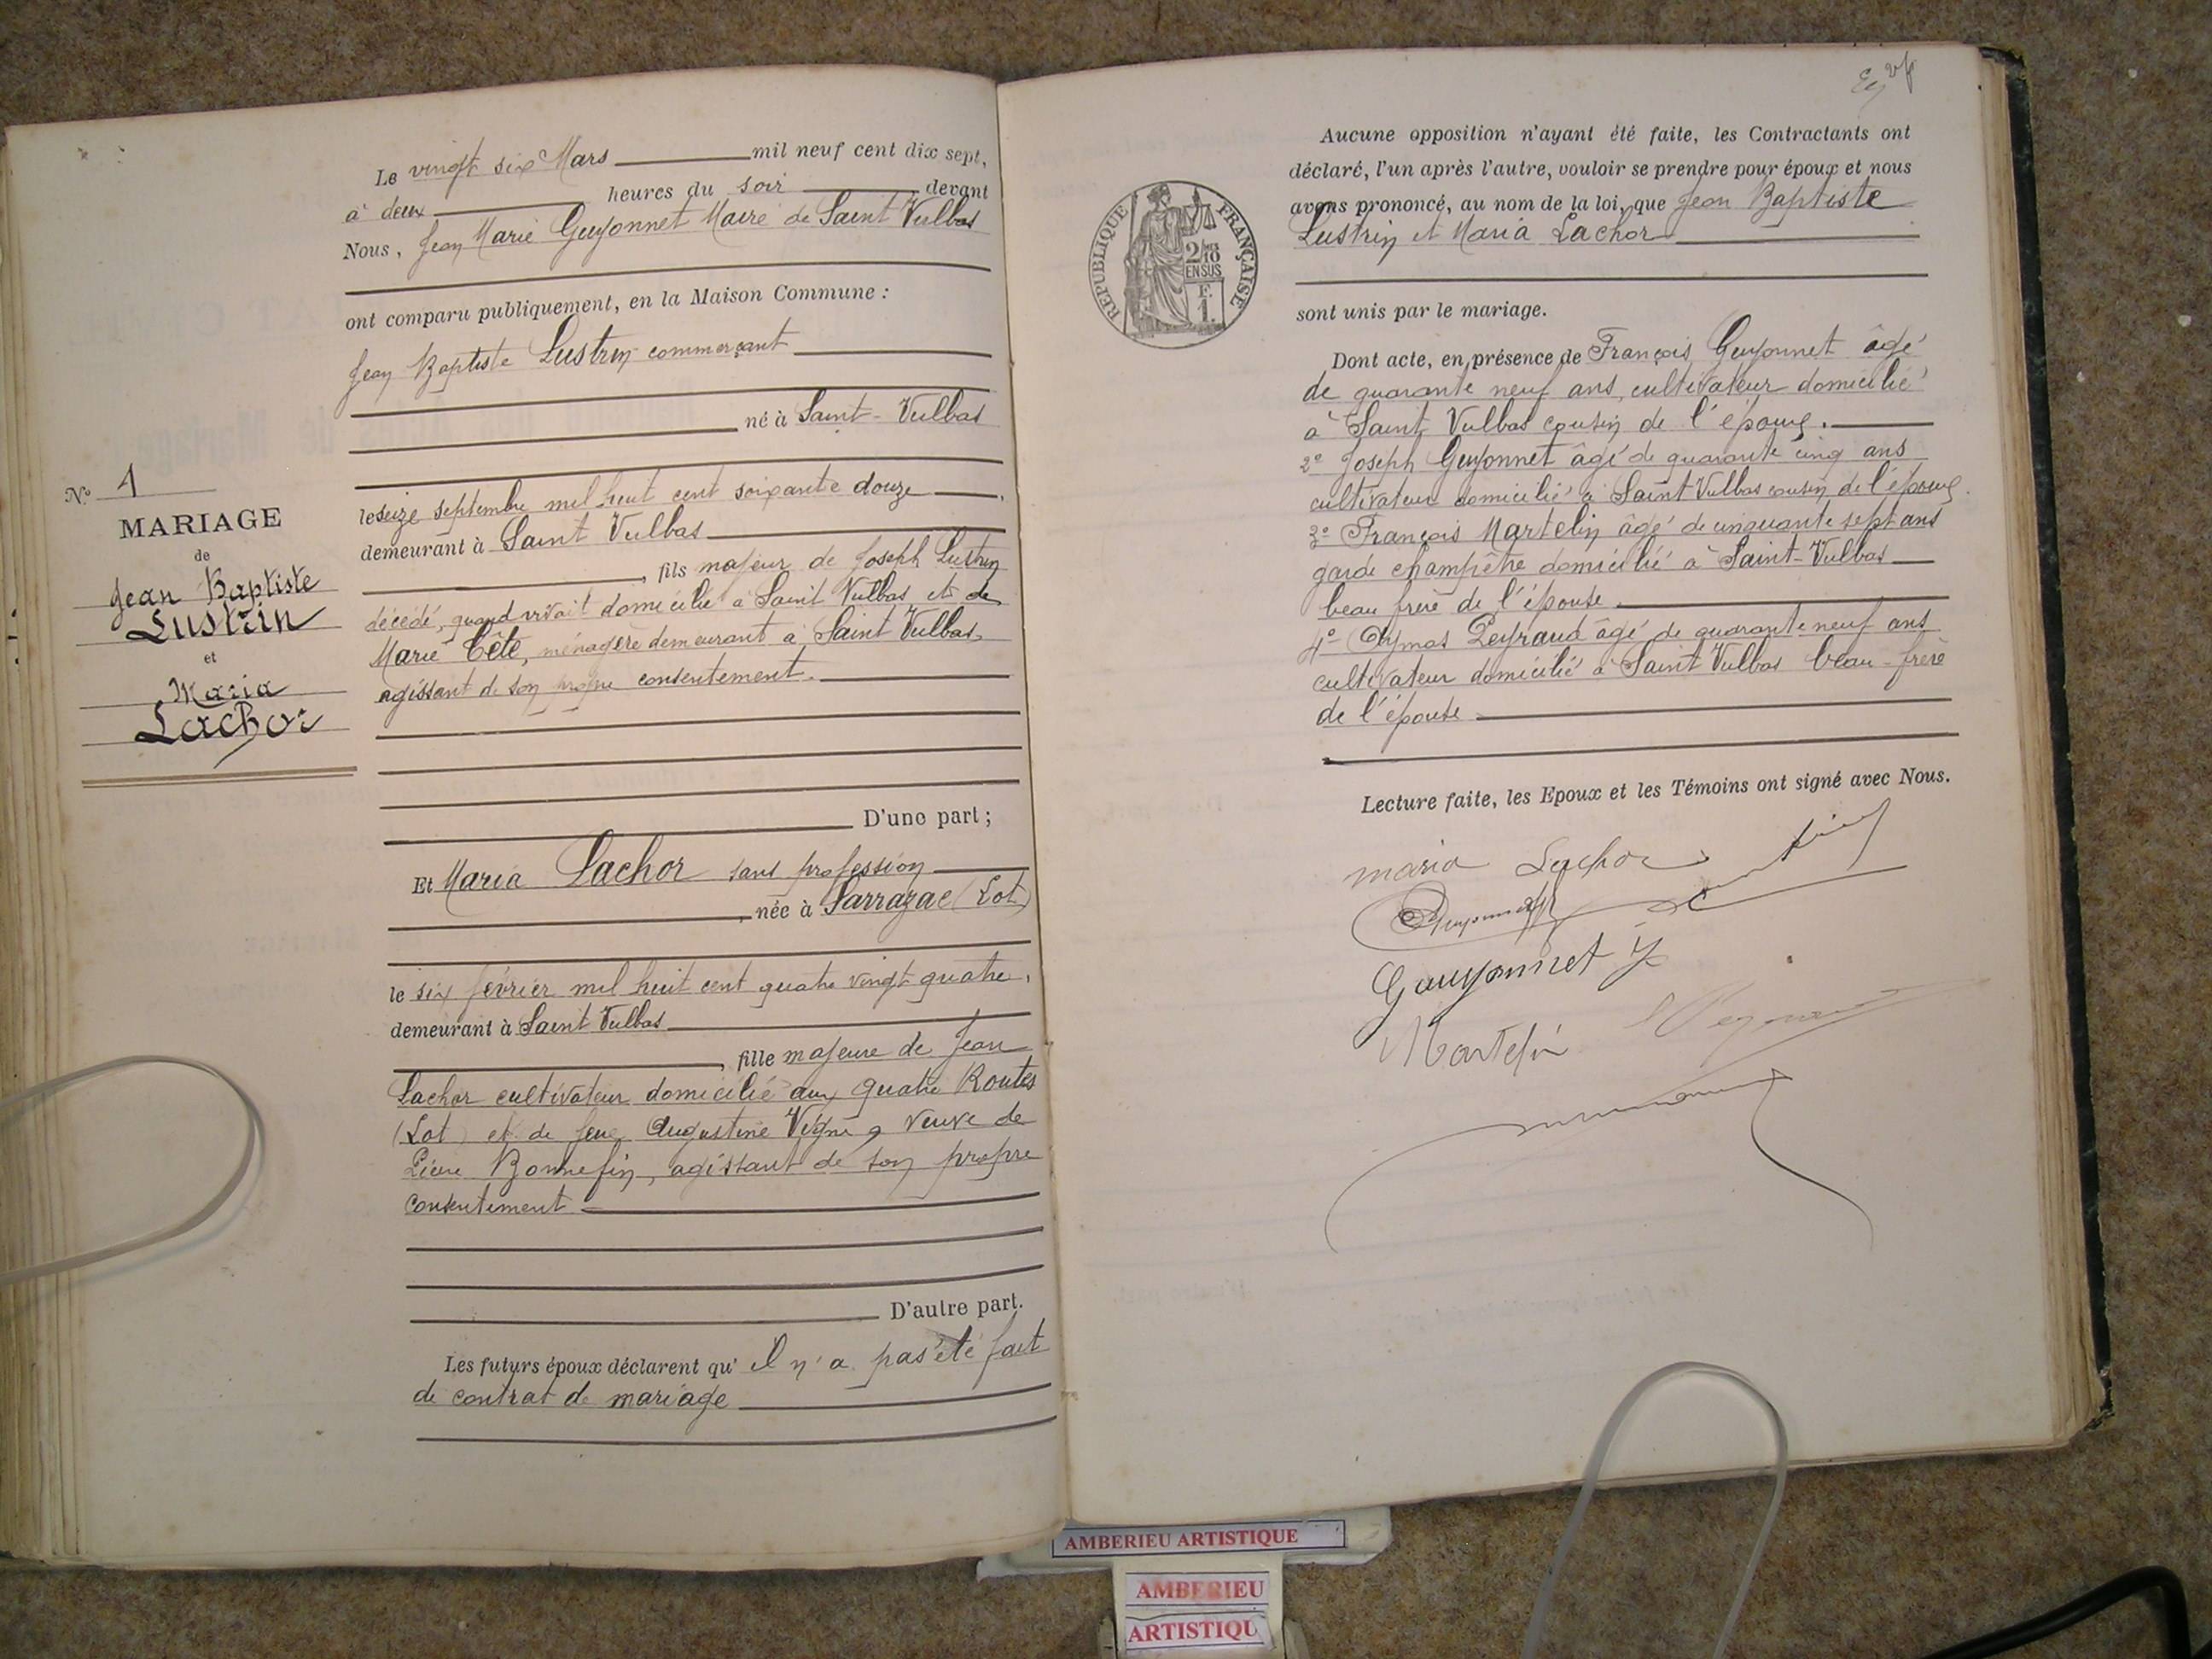 Le vingt six Mars mil neuf cent dix sept,
à deux heures du soir devant
Nous, Jean Marie Guyonnet Maire de Saint Vulbas
ont comparu publiquement, en la Maison Commune :
Jean Baptiste Lustrin commerçant
né à Saint-Vulbas
le seize septembre mil huit cent soixante douze
demeurant à Saint Vulbas
, fils majeur de Joseph Lustrin
décédé, quand vivait domicilié à Saint Vulbas et de
Marie Tête, ménagère demeurant à Saint Vulbas,
agissant de son propre consentement.
D'une part ;
Et Maria Lachor sans profession
, née à Sarrazac (Lot)
le six février mil huit cent quatre vingt quatre,
demeurant à Saint Vulbas
, fille majeure de Jean
Lachor cultivateur domicilié aux quatre Routes
(Lot) et de feue Augustine veuve de
Pierre Bonnefin, agissant de son propre
consentement
D'autre part.
Les futurs époux déclarent qu' il n'a pas été fait
de contrat de mariage
No 1
MARIAGE
de
Jean Baptiste
Lustrin
et
Maria
Lachor
REPUBLIQUE FRANÇAISE
2/10
EN SUS
F.
1.
Aucune opposition n'ayant été faite, les Contractants ont
déclaré, l'un après l'autre, vouloir se prendre pour époux et nous
avons prononcé, au nom de la loi, que Jean Baptiste
Lustrin et Maria Lachor
sont unis par le mariage.
Dont acte, en présence de François Guyonnet âgé
de quarante neuf ans, cultivateur domicilié
à Saint Vulbas cousin de l'époux.
2° Joseph Guyonnet âgé de quarante cinq ans
cultivateur domicilié à Saint Vulbas cousin de l'époux.
3° François Martelin âgé de cinquante sept ans
garde champêtre domicilié à Saint-Vulbas
beau frère de l'épouse.
4° Peyraud âgé de quarante neuf ans
cultivateur domicilié à Saint Vulbas beau-frère
de l'épouse
Lecture faite, les Epoux et les Témoins ont signé avec Nous.
maria Lachor
Guyonnet
Guyonnet
Martelin
AMBERIEU ARTISTIQUE
AMBERIEU
ARTISTIQU